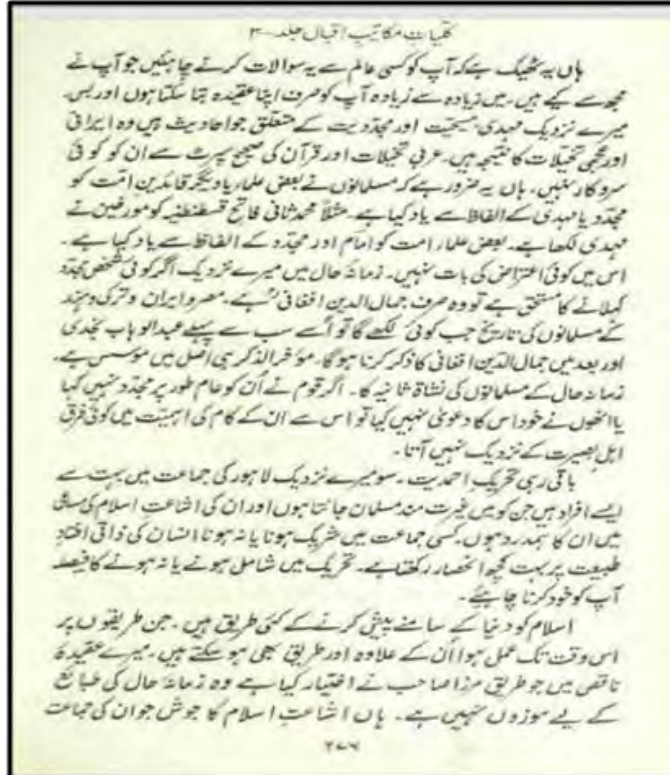 کلیاتِ مکاتیبِ اقبال جلد۔۳
ہاں یہ ٹھیک ہے کہ آپ کو کسی عالم سے یہ سوالات کرنے چاہئیں جو آپ نے
مجھ سے کیے ہیں۔ میں زیادہ سے زیادہ آپ کو صرف اپنا عقیدہ بتا سکتا ہوں اور بس۔
میرے نزدیک مہدی مسیحیت اور مجدّدیت کے متعلق جو احادیث ہیں وہ ایرانی
اور عجمی تخیلات کا نتیجہ ہیں۔ عربی تخیلات اور قرآن کی صحیح سپرٹ سے ان کو کوئی
سروکار نہیں۔ ہاں یہ ضرور ہے کہ مسلمانوں نے بعض علماء یا دیگر قائدینِ امّت کو
مجدّد یا مہدی کے الفاظ سے یاد کیا ہے۔ مثلاً محمد ثانی فاتح قسطنطنیہ کو مورخین نے
مہدی لکھا ہے۔ بعض علماء امت کو امام اور مجدّد کے الفاظ سے یاد کیا ہے۔
اس میں کوئی اعتراض کی بات نہیں۔ زمانۂ حال میں میرے نزدیک اگر کوئی شخص مجدّد
کہلانے کا مستحق ہے تو وہ صرف جمال الدین افغانی ہے۔ مصر و ایران و ترکی و ہند
کے مسلمانوں کی تاریخ جب کوئی لکھے گا تو اُسے سب سے پہلے عبدالوہاب نجدی
اور بعد میں جمال الدّین افغانی کا ذکر کرنا ہو گا۔ مؤخر الذکر ہی اصل میں مؤسس ہے۔
زمانہ حال کے مسلمانوں کی نشاۃ ثانیہ کا۔ اگر قوم نے اُن کو عام طور پر مجدّد نہیں کہا
یا انھوں نے خود اس کا دعویٰ نہیں کیا تو اس سے ان کے کام کی اہمیّت میں کوئی فرق
اہلِ بصیرت کے نزدیک نہیں آتا۔
باقی رہی تحریکِ احمدیت۔ سو میرے نزدیک لاہور کی جماعت میں بہت سے
ایسے افراد ہیں جن کو میں غیرت مند مسلمان جانتا ہوں اور ان کی اشاعتِ اسلام کی مساعی
میں ان کا ہمدرد ہوں۔ کسی جماعت میں شریک ہونا یا نہ ہونا انسان کی ذاتی افتادِ
طبیعت پر بہت کچھ انحصار رکھتا ہے۔ تحریک میں شامل ہونے یا نہ ہونے کا فیصلہ
آپ کو خود کرنا چاہئے۔
اسلام کو دنیا کے سامنے پیش کرنے کے کئی طریق ہیں۔ جن طریقوں پر
اس وقت تک عمل ہوا اُن کے علاوہ اور طریق بھی ہو سکتے ہیں۔ میرے عقیدۂ
ناقص میں جو طریق مرزا صاحب نے اختیار کیا ہے وہ زمانۂ حال کی طبائع
کے لیے موزوں نہیں ہے۔ ہاں اشاعتِ اسلام کا جوش جو ان کی جماعت
۲۷۶